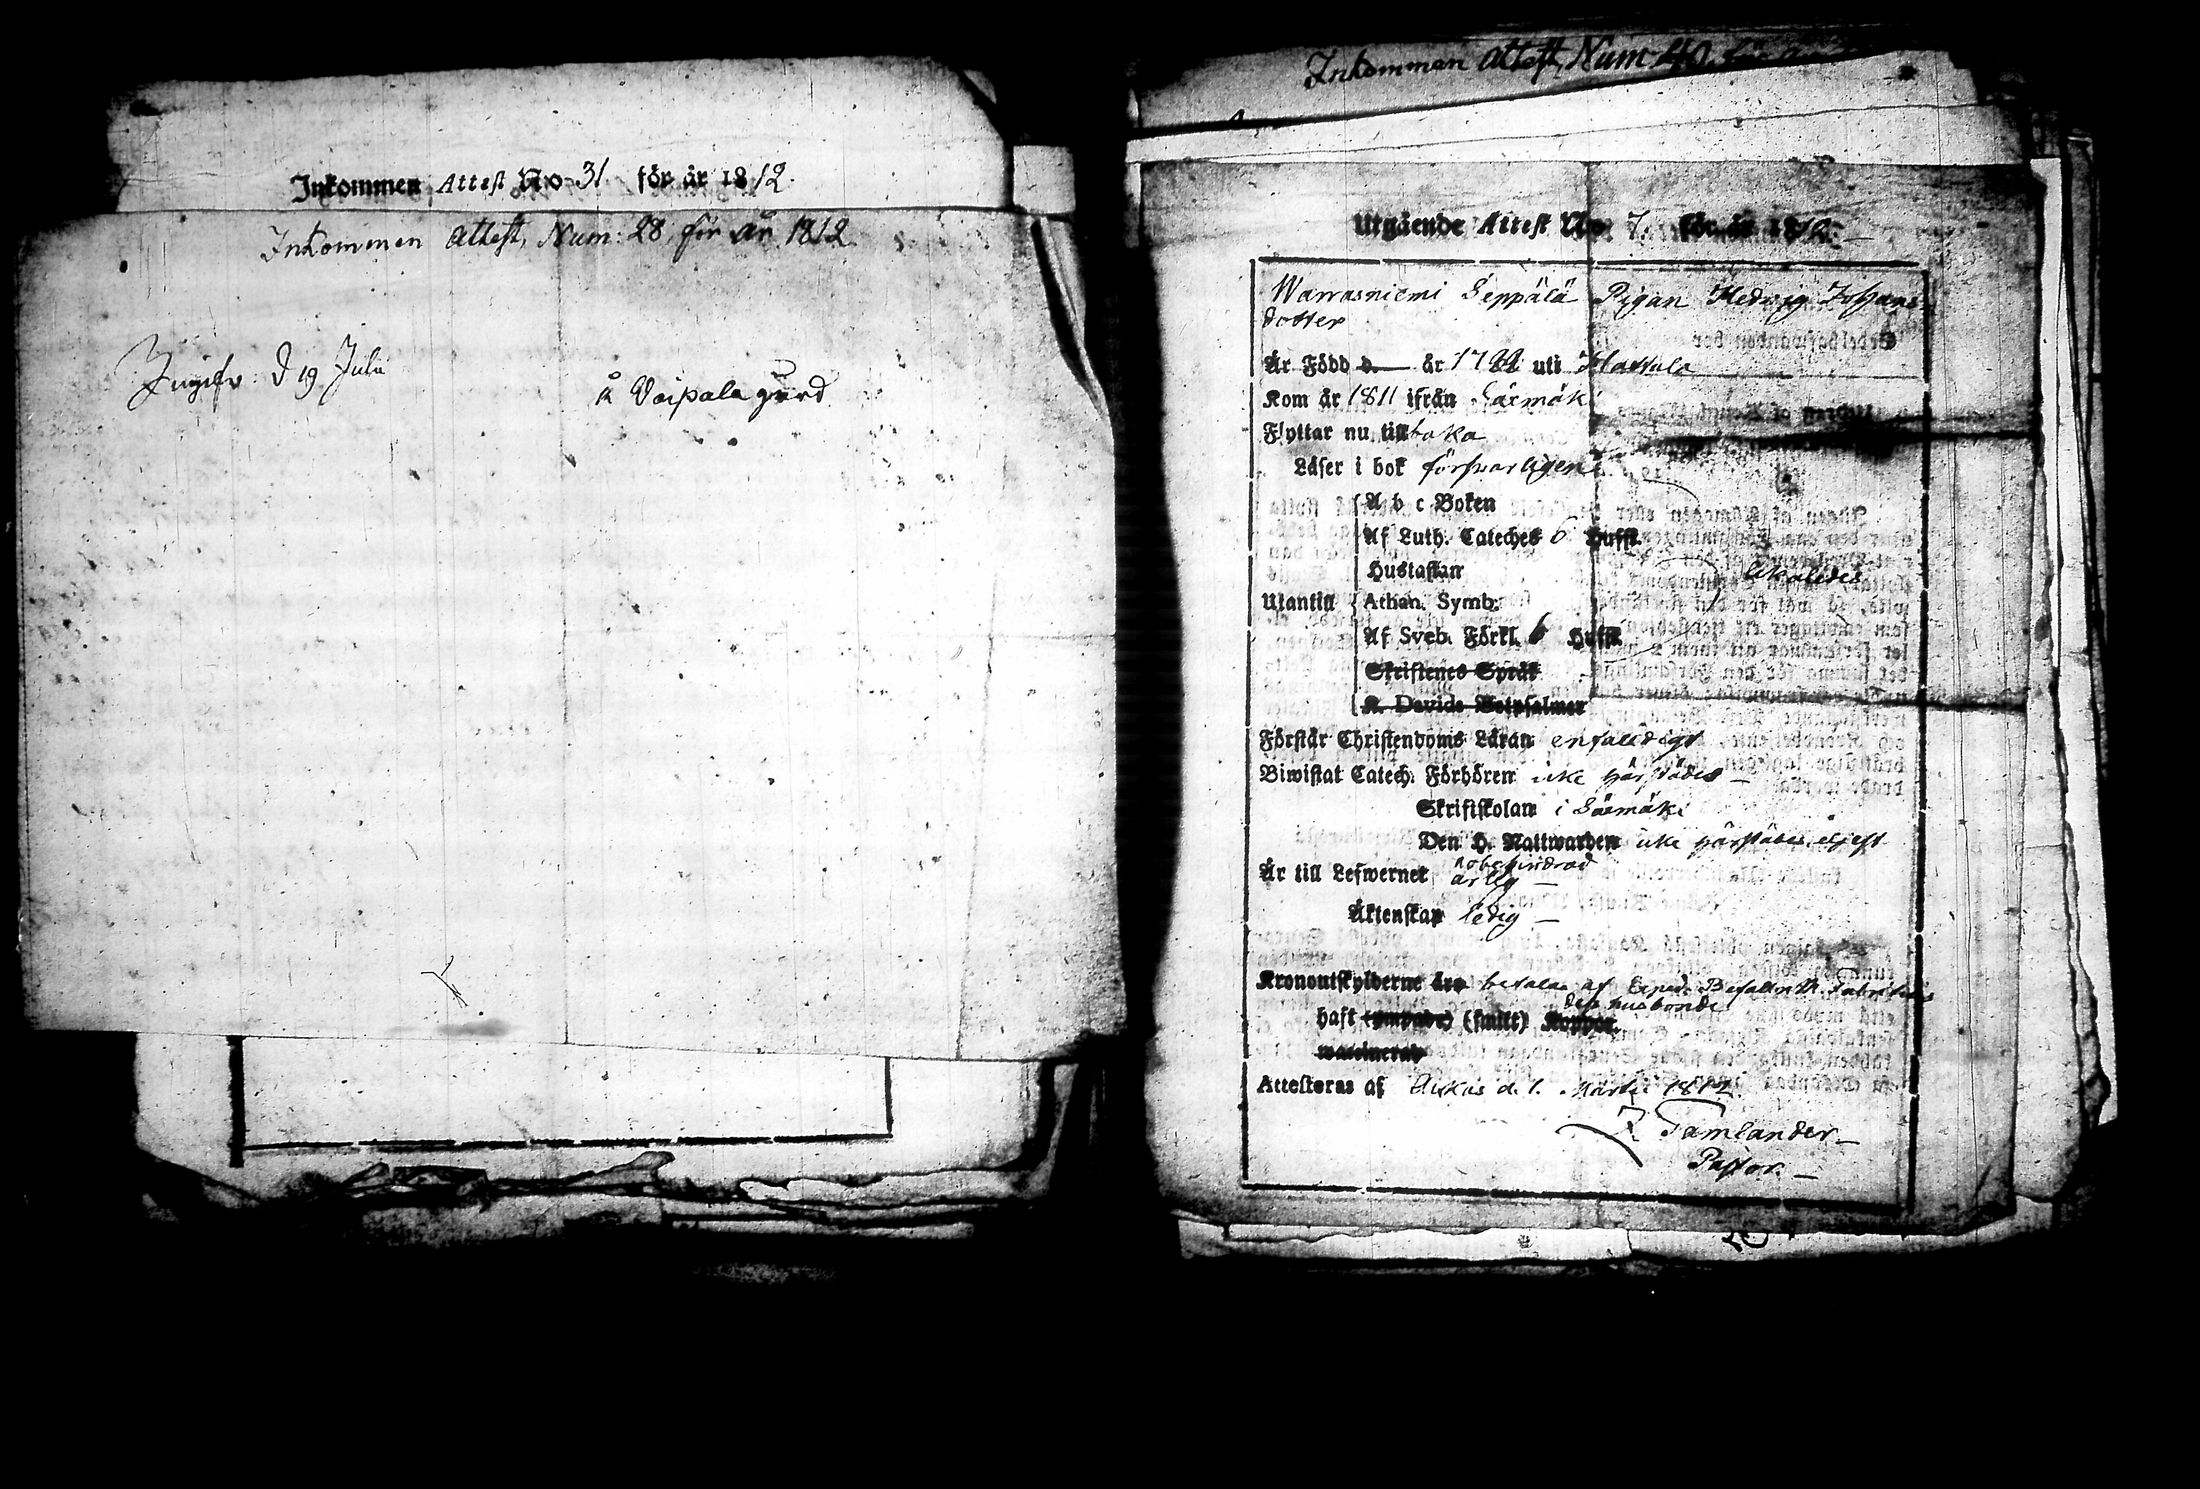 Inkommen Attest No 31 för år 1812.
Inkommen attest, Num: 28, för år 1812
d 19 Julii
å Voipala gård
Inkommen attest, Num 40, för
Utgående Attest No 7. för år 1812.
Warrasniemi Seppälä Pigan Hedvig Johans
dotter
Är Född d. — år 17 uti Hattula
Kom år 1811 ifrån Säxmäki
Flyttar nu tillbaka
Läser i bok försvarligen
A b c Boken
Af Luth. Cateches 6 Hufst.
Hustaflan likaledes
Utantill Athan. Symb.
Af Sveb. Förkl. 6 Hufst.
Skriftenes Språk
K. Davids Botpsalmer
Förstår Christendoms Läran enfaldigt
Biwistat Catech. Förhören icke härstädes —
Skriftskolan i Säxmäki
Den H. Nattwarden icke härstädes, eljest
obehindrad
Är till Lefwernet ärlig —
Äktenskap ledig —
Kronoutskylderne äro betalas af Befalln
dess husbonde
haft (ympade) (smitt) Koppor.
waccinerad
Attesteras af Akkas d. 1. Martii 1812.
J. Tamlander —
Pastor. —